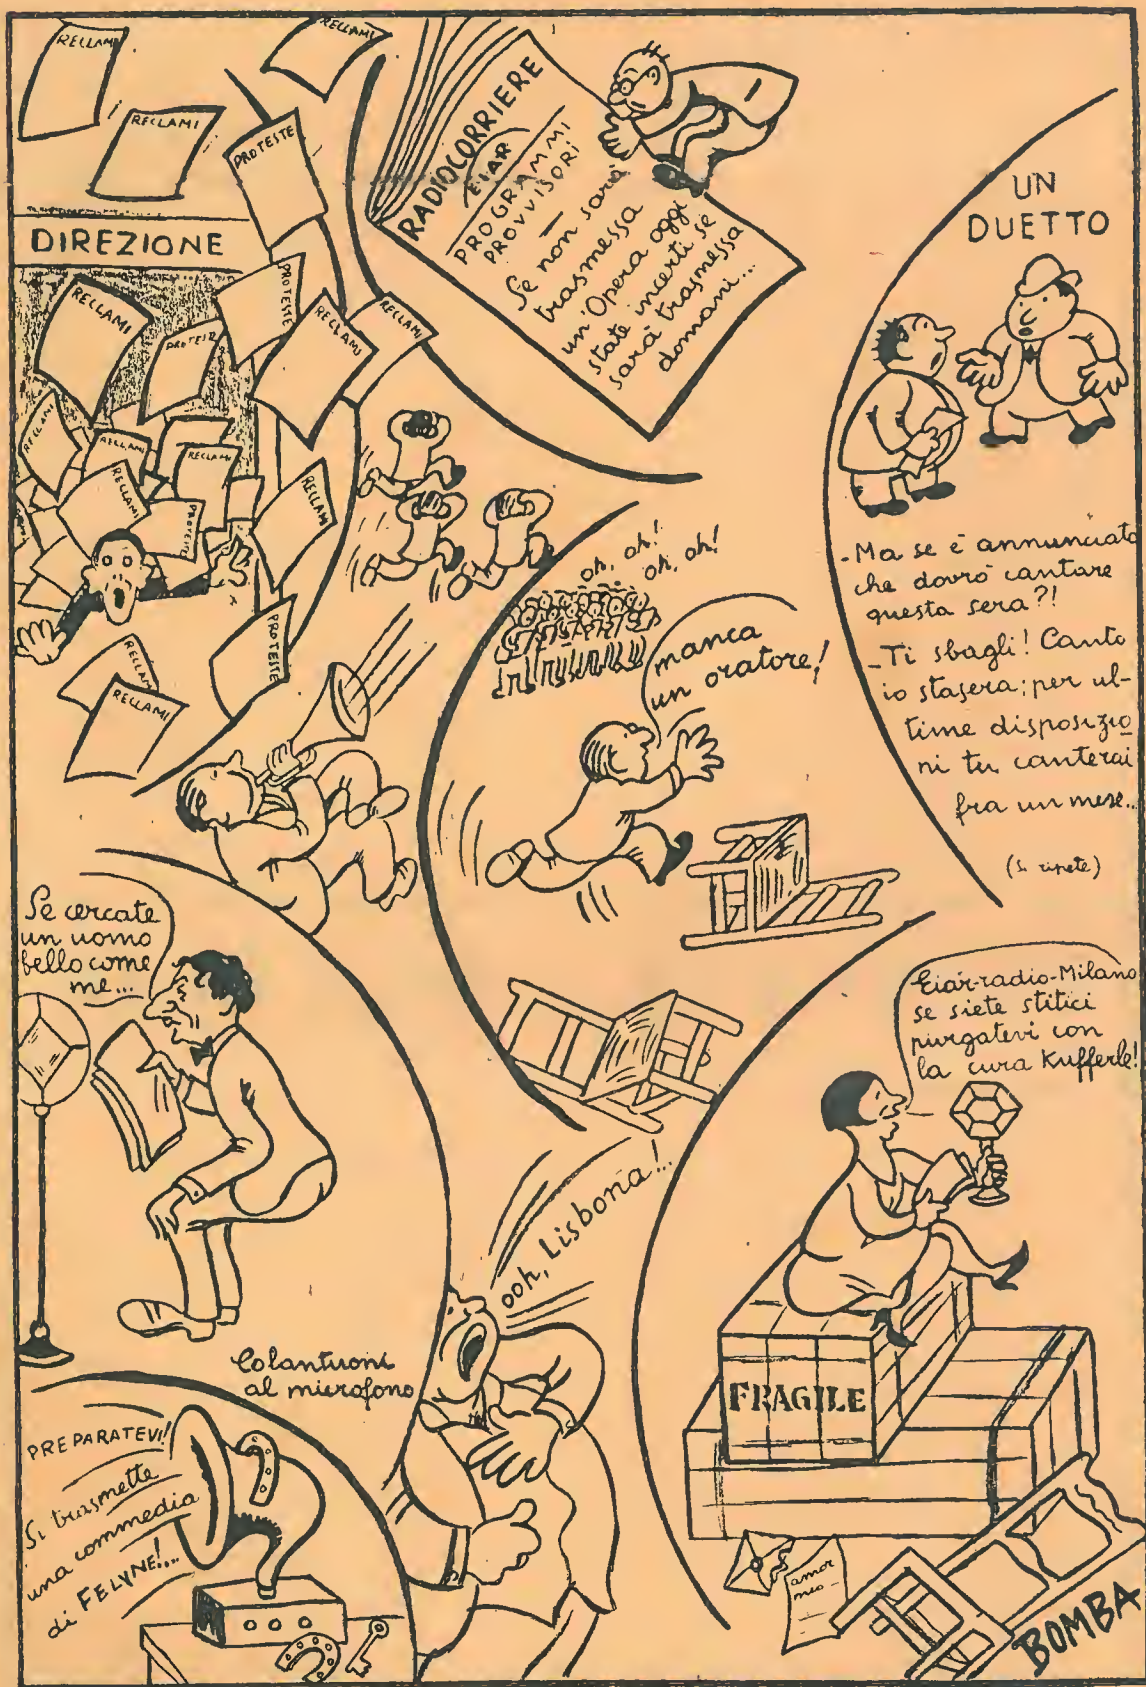 RECLAMI
RECLAMI
RECLAMI
PROTESTE
DIREZIONE
RECLAMI
PROTESTE
PROTESTE
RECLAMI
RECLAMI
RECLAMI
RECLAMI
RECLAMI
RECLAMI
PROTESTE
RECLAMI
PROTESTE
RECLAMI
RECLAMI
RADIOCORRIERE
EIAR
PROGRAMMI
PROVVISORI
Se non sarà
trasmessa
un'Opera oggi
state incerti se
sarà trasmessa
domani...
UN
DUETTO
-Ma se è annunciato
che dovrò cantare
questa sera?!
-Ti sbagli! Canto
io stasera; per ul-
time disposizio
ni tu canterai
fra un mese..
(Si ripete)
oh, oh!
oh, oh!
manca
un oratore!
Se cercate
un uomo
bello come
me...
Colantuoni
al microfono
Eiar-radio-Milano
se siete stitici
purgatevi con
la cura Kufferle!
FRAGILE
amor
mio-
ooh, Lisbona!..
PREPARATEVI!
Si trasmette
una commedia
di FELYNE!...
BOMBA